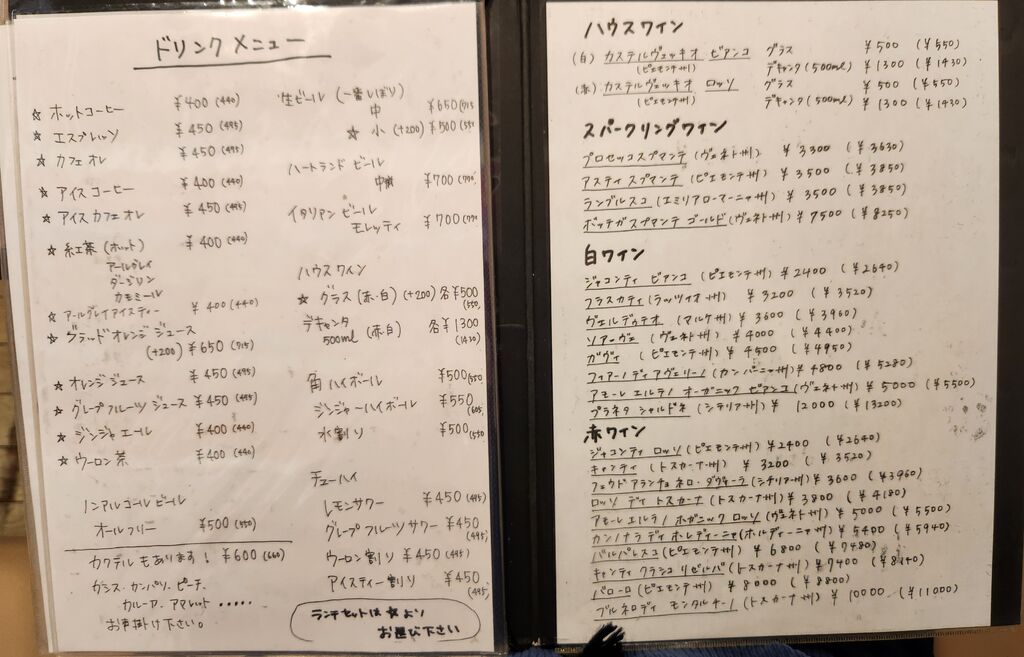 ドリンクメニュー
☆ ホットコーヒー ¥400 (440)
☆ エスプレッソ ¥450 (495)
☆ カフェオレ ¥450 (495)
☆ アイスコーヒー ¥400 (440)
☆ アイスカフェオレ ¥450 (495)
☆ 紅茶 (ホット) ¥400 (440)
アールグレイ
ダージリン
カモミール
☆ アールグレイアイスティー ¥400 (440)
☆ ブラッドオレンジジュース
(+200) ¥650 (715)
☆ オレンジジュース ¥450 (495)
☆ グレープフルーツジュース ¥450 (495)
☆ ジンジャエール ¥400 (440)
☆ ウーロン茶 ¥400 (440)
ノンアルコールビール
オールフリー ¥500 (550)
カクテルもあります! ¥600 (660)
カシス・カンパリ、ピーチ、
カルーア、アマレット・・・・・
お声掛け下さい。
生ビール (一番しぼり)
中 ¥650 (715
☆ 小 (+200) ¥500 (550
ハートランドビール
¥700 (770)
イタリアンビール
モレッティ ¥700 (770
ハウスワイン
☆ グラス (赤・白) (+200) 各¥500
(550)
デキャンタ
500ml (赤・白) 各¥1300
(1430)
角ハイボール ¥500 (550)
ジンジャーハイボール ¥550
(605)
水割り ¥500 (550
チューハイ
レモンサワー ¥450 (495)
グレープフルーツサワー ¥450
(495)
ウーロン割り ¥450 (495)
アイスティー割り ¥450
(495)
ランチセットは☆より
お選び下さい
ハウスワイン
(白) カステルヴェッキオ ビアンコ グラス ¥500 (¥550)
(ピエモンテ州) デキャンタ (500ml) ¥1300 (¥1430)
(赤) カステルヴェッキオ ロッソ グラス ¥500 (¥550)
(ピエモンテ州) デキャンタ (500ml) ¥1300 (¥1430)
スパークリングワイン
プロセッコスプマンテ (ヴェネト州) ¥3300 (¥3630)
アスティスプマンテ (ピエモンテ州) ¥3500 (¥3850)
ランブルスコ (エミリアローマーニャ州) ¥3500 (¥3850)
ボッテガスプマンテ ゴールド (ヴェネト州) ¥7500 (¥8250)
白ワイン
ジャコンディ ビアンコ (ピエモンテ州) ¥2400 (¥2640)
フラスカティ (ラッツィオ州) ¥3200 (¥3520)
ヴェルディッテオ (マルケ州) ¥3600 (¥3960)
ソアーヴェ (ヴェネト州) ¥4000 (¥4400)
ガヴィ (ピエモンテ州) ¥4500 (¥4950)
フィアーノディアヴェリーノ (カンパーニャ州) ¥4800 (¥5280)
アモーレエルテノ オーガニック ビアンコ (ヴェネト州) ¥5000 (¥5500)
プラネタ シャルドネ (シチリア州) ¥12000 (¥13200)
赤ワイン
ジャコンディ ロッソ (ピエモンテ州) ¥2400 (¥2640)
キャンティ (トスカーナ州) ¥3200 (¥3520)
フェウドアランチョネロ・ダヴォーラ (シチリア州) ¥3600 (¥3960)
ロッソ ディ トスカーナ (トスカーナ州) ¥3800 (¥4180)
アモーレエルテノ オガニック ロッソ (ヴェネト州) ¥5000 (¥5500)
カンノナラ ディ サレディーニャ (ホルディーニャ州) ¥5400 (¥5940)
バルバレスコ (ピエモンテ州) ¥6800 (¥7480)
キャンティ クラシコ リゼルバ (トスカーナ州) ¥7400 (¥8140)
バローロ (ピエモンテ州) ¥8000 (¥8800)
ブルネロディ モンタルチーノ (トスカーナ州) ¥10000 (¥11000)